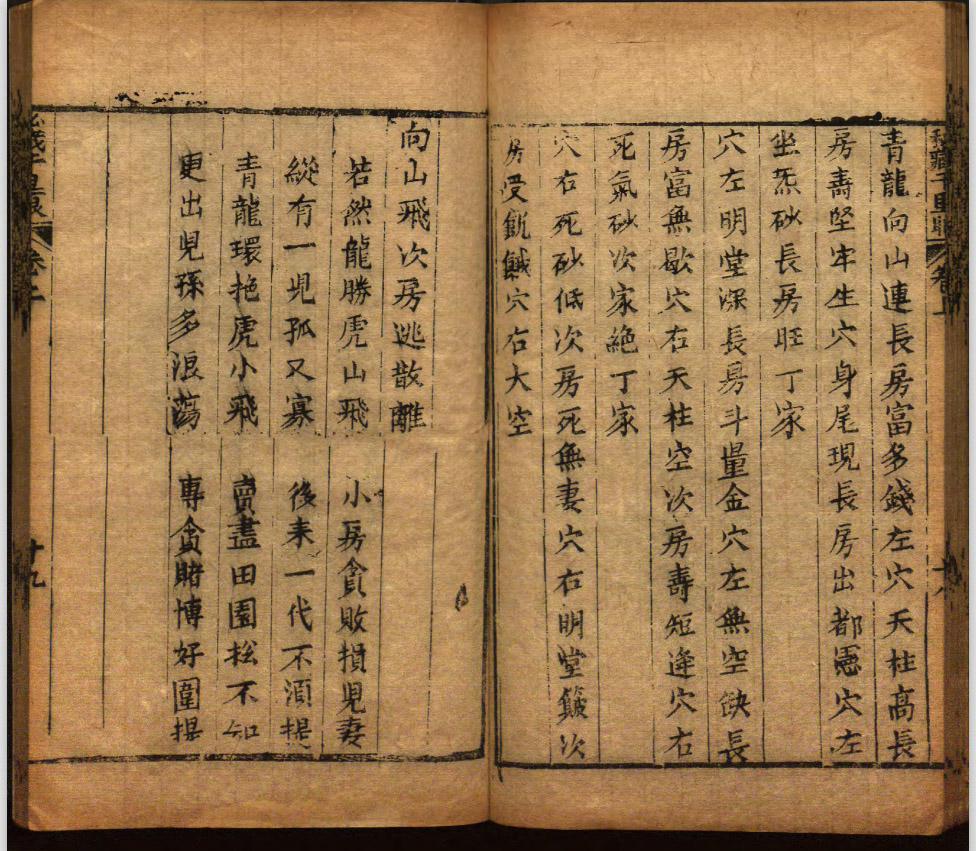 青龍向山連長房富多錢左穴天柱高長
房壽堅牢生穴身尾現長房出都憲穴左
坐炁砂長房旺丁家
穴左明堂深長房斗量金穴左無空缺長
房富無歇穴右天柱空次房壽短逢穴右
死氣砂次家絕丁家
穴右死砂低次房死無妻穴右明堂次
房受飢穴右大空
卷
十八
向山飛次房逃散離
若然龍勝虎山飛 小房貪敗損児妻
縱有一児孤又寡 後来一代不湏提
青龍環抱虎小飛 賣盡田園松不知
更出児孫多浪蕩 專貪賭博好圍
卷二
十九